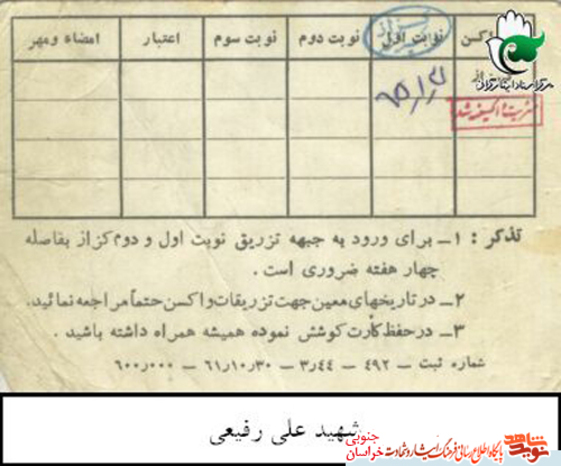 واکسن نوبت اول نوبت دوم نوبت سوم اعتبار امضاء ومهر
کزاز
تذکر : ۱ــ برای ورود به جبهه تزریق نوبت اول و دوم کزاز بفاصله
چهار هفته ضروری است .
۲ــ در تاریخهای معین جهت تزریقات واکسن حتماً مراجعه نمائید.
۳ــ در حفظ کارت کوشش نموده همیشه همراه داشته باشید .
شماره ثبت ــ ۴۹۲ ــ ۳٫۴۴ ــ ۶۱٫۱۰٫۳۰ ــ ۶۰۰٫۰۰۰
شهید علی رفیعی
نوید شاهد
پایگاه اطلاع رسانی فرهنگ ایثار و شهادت
خراسان جنوبی